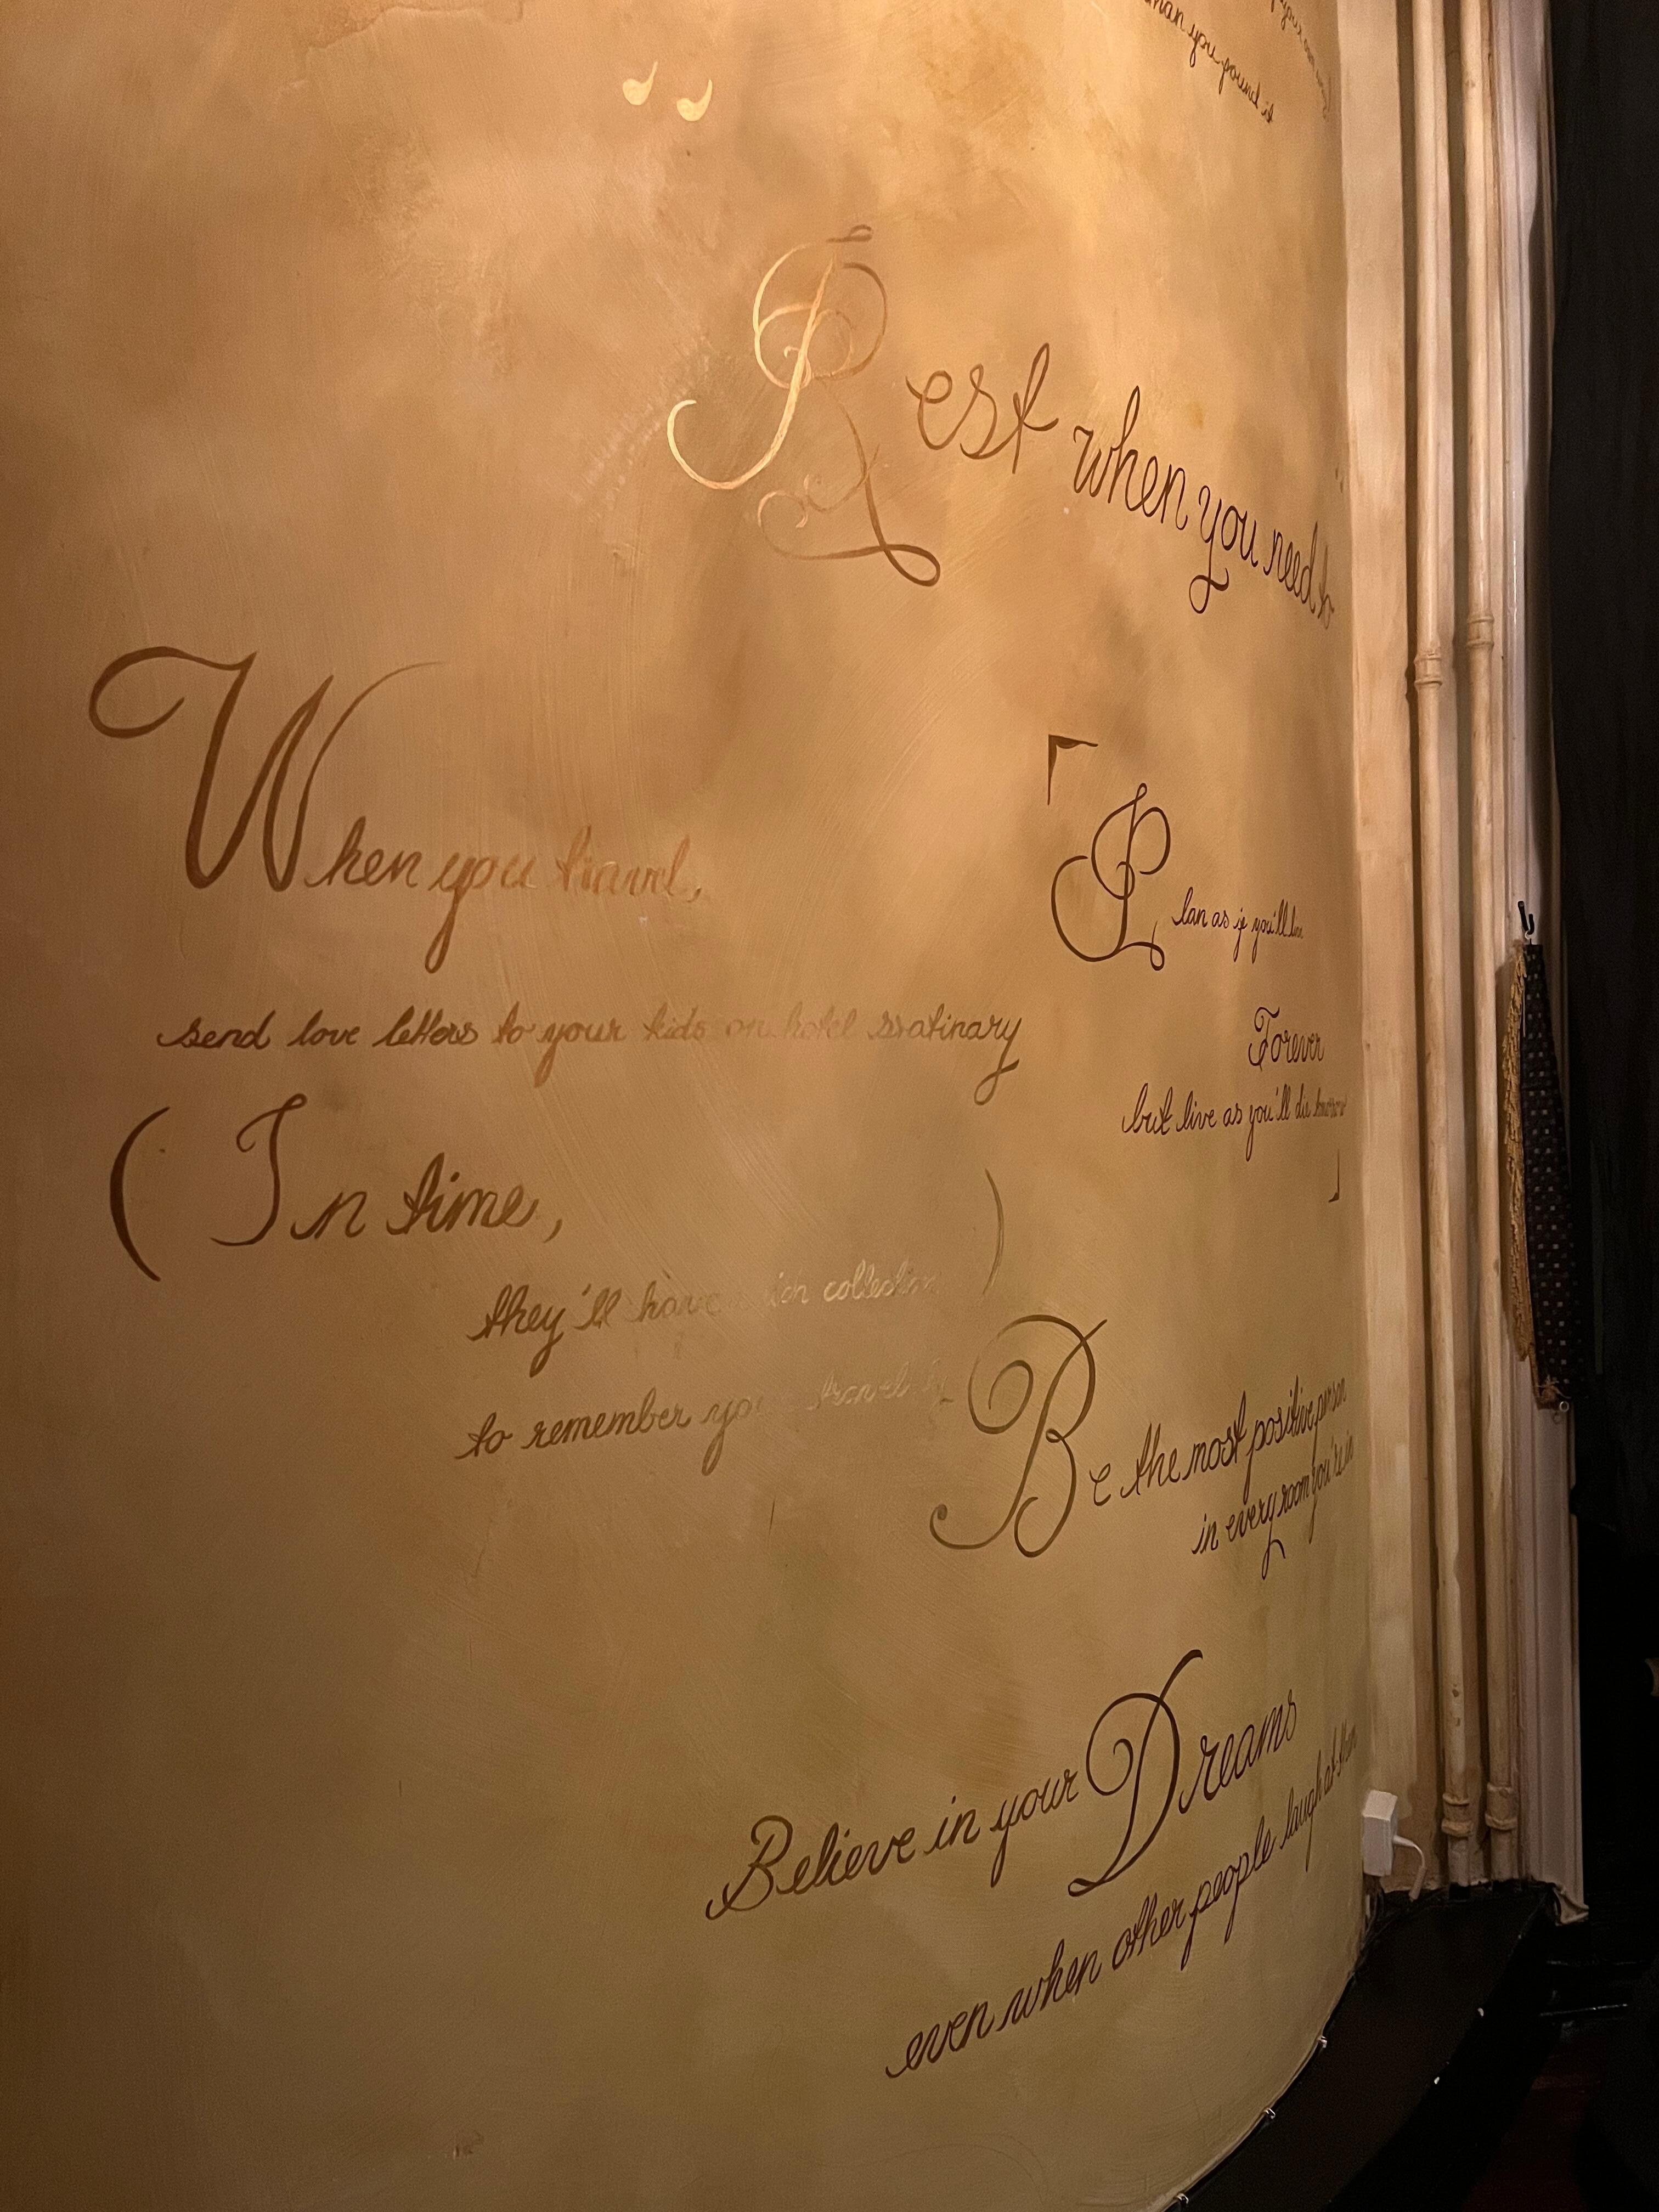 than you found it
Rest when you need to
When you travel,
send love letters to your kids on hotel statinary
( In time, )
they'll have rich collection
to remember your travel by
「 Plan as if you'll live
Forever
but live as you'll die tomorrow 」
Be the most positive person
in every room you're in
Believe in your Dreams
even when other people laugh at them